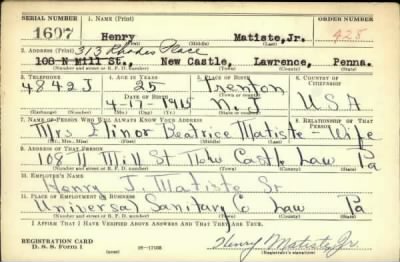 SERIAL NUMBER 1. NAME (Print) ORDER NUMBER
1697 Henry Matiste, Jr. 428
(First) (Middle) (Last)
2. ADDRESS (Print) 313 Rhodes Place
108 N Mill St., New Castle, Lawrence, Penna.
(Number and street or R. F. D. number) (Town) (County) (State)
3. TELEPHONE 4. AGE IN YEARS 5. PLACE OF BIRTH 6. COUNTRY OF CITIZENSHIP
4842J 25 Trenton
DATE OF BIRTH (Town or county)
4-17-1915 N. J U S A
(Exchange) (Number) (Mo.) (Day) (Yr.) (State or country)
7. NAME OF PERSON WHO WILL ALWAYS KNOW YOUR ADDRESS 8. RELATIONSHIP OF THAT PERSON
Mrs Elinor Beatrice Matiste - Wife
(Mr., Mrs., Miss) (First) (Middle) (Last)
9. ADDRESS OF THAT PERSON
108 N Mill St New Castle Law Pa
(Number and street or R. F. D. number) (Town) (County) (State)
10. EMPLOYER'S NAME
Henry J. Matiste Sr
11. PLACE OF EMPLOYMENT OR BUSINESS
Universal Sanitary Co Law Pa
(Number and street or R. F. D. number) (Town) (County) (State)
I AFFIRM THAT I HAVE VERIFIED ABOVE ANSWERS AND THAT THEY ARE TRUE.
REGISTRATION CARD
D. S. S. Form 1 Henry Matiste, Jr.
(Registrant's signature)